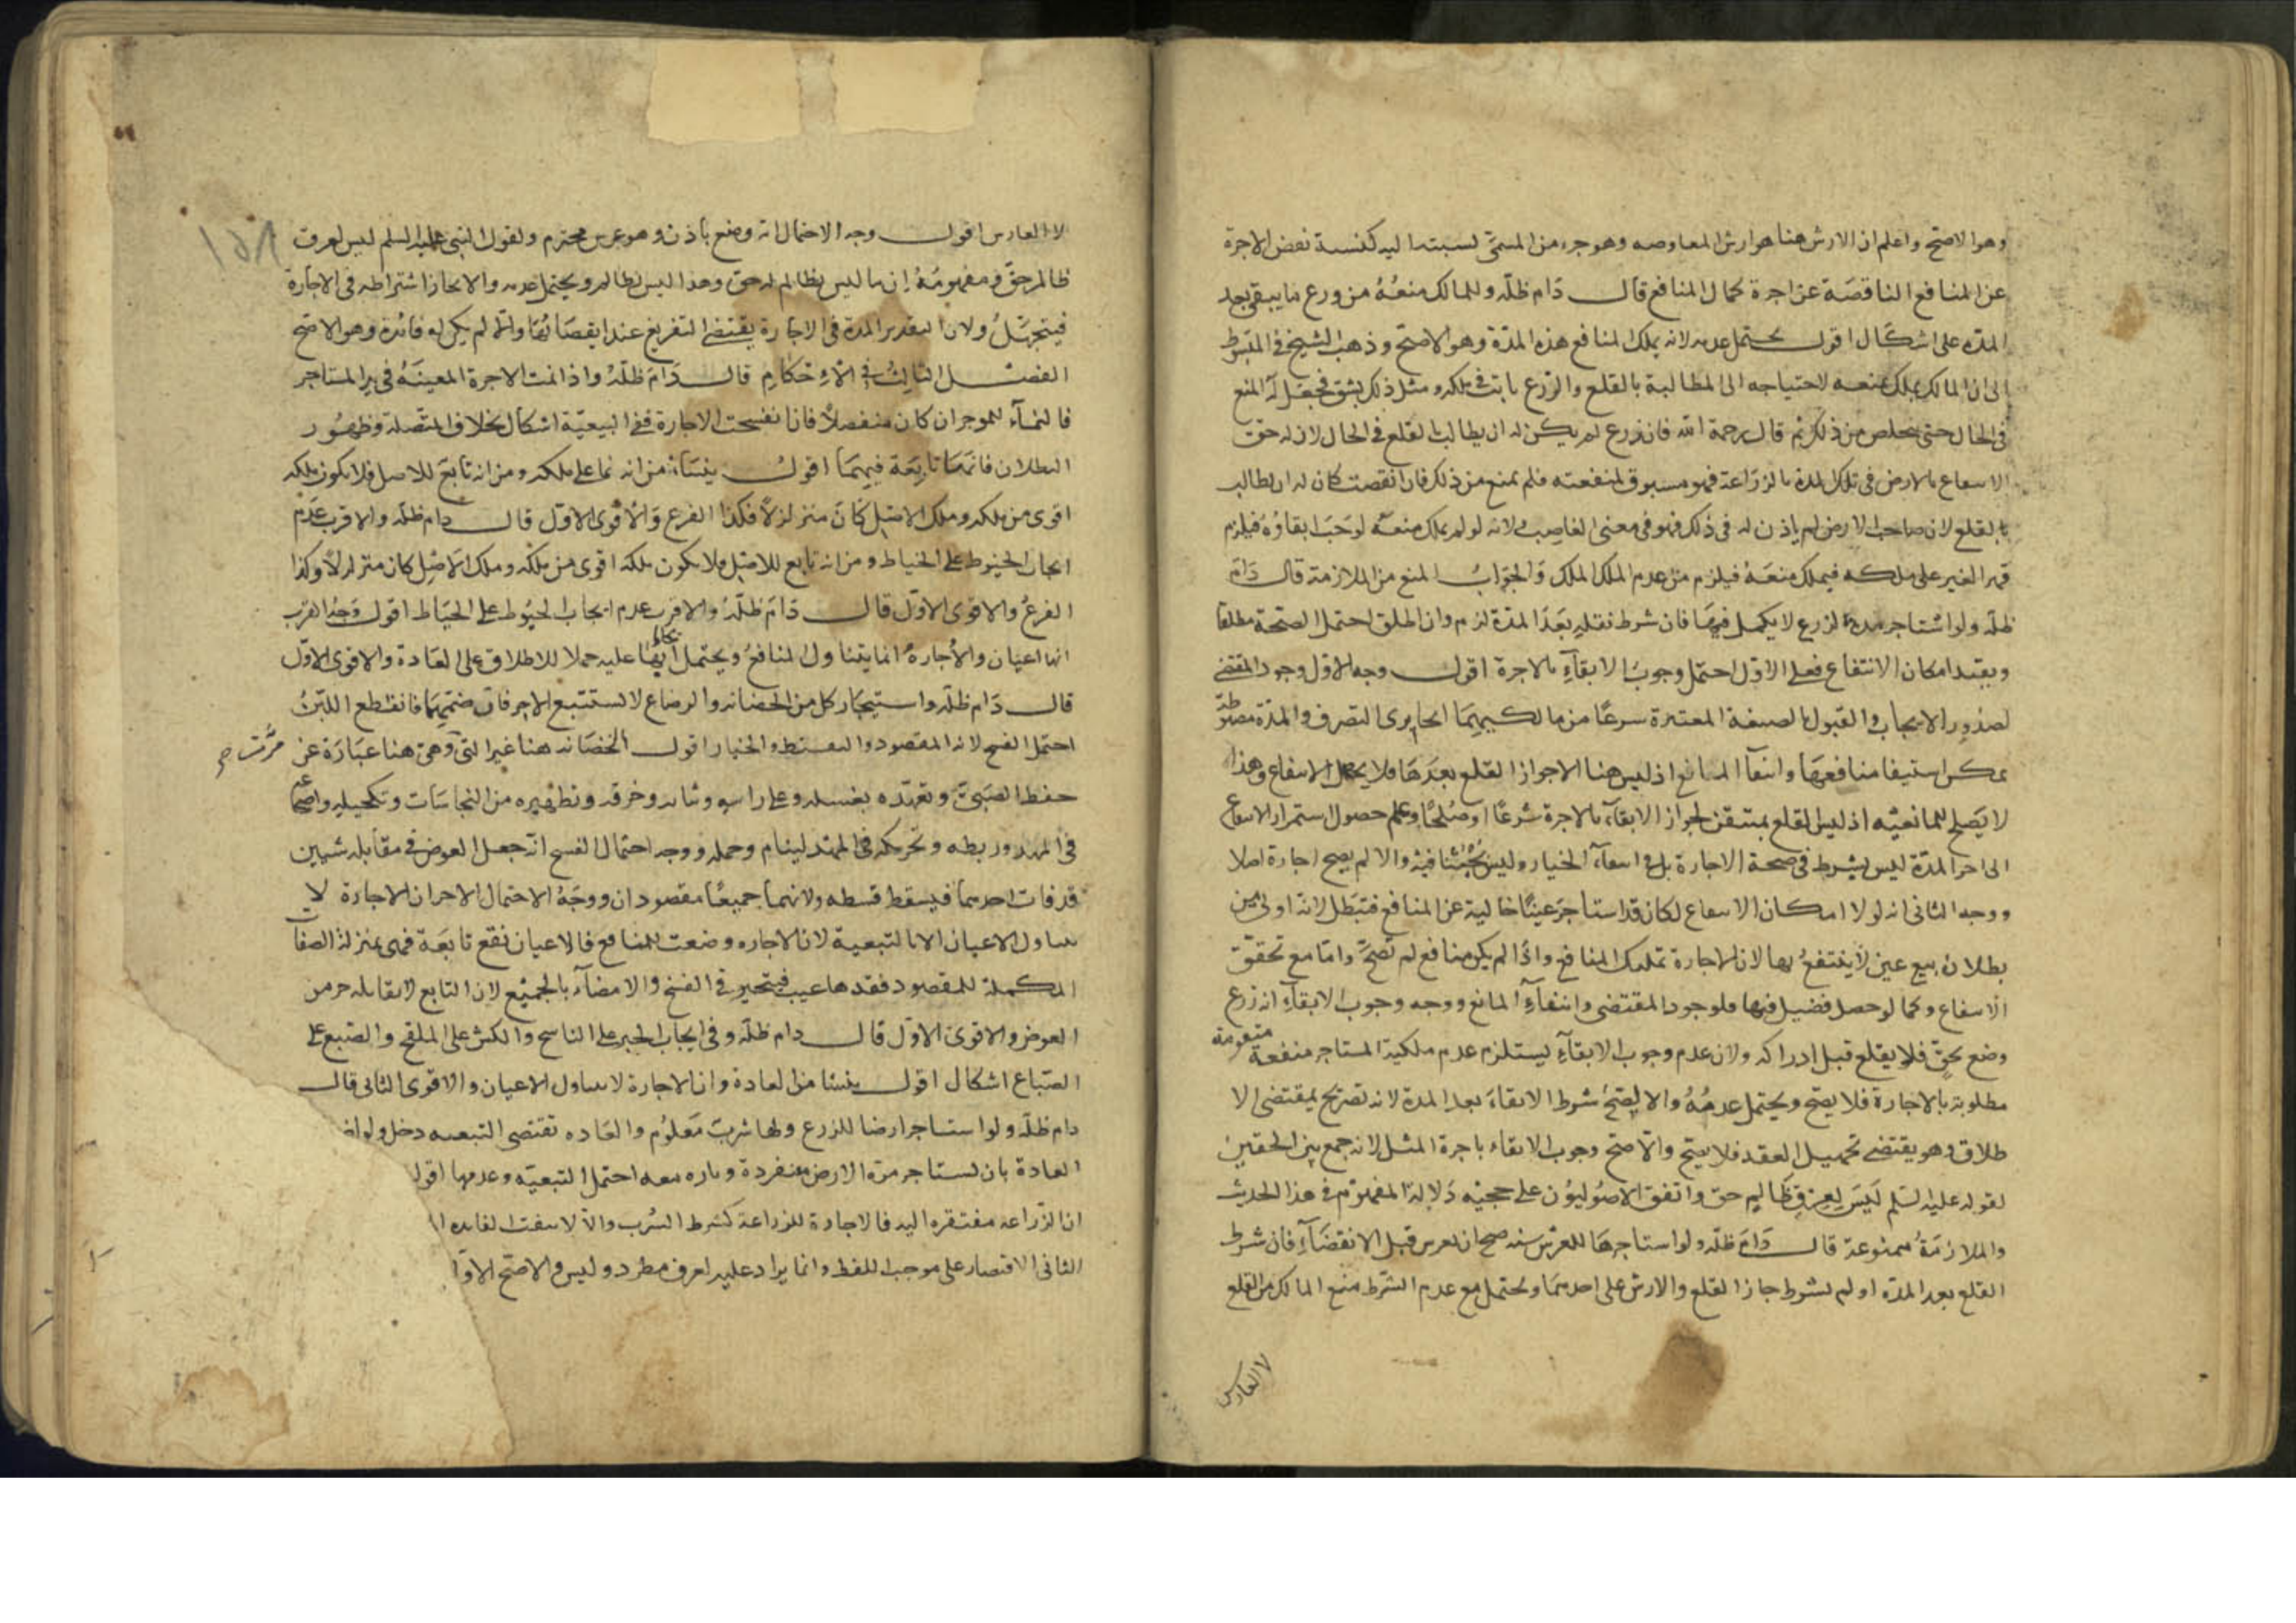 وهو الاصح واعلم ان الارش هنا هو ارش المعاوضه وهو جزء من المسمى نسبته اليه كنسبة نقص الاجرة
عن المنافع الناقصة عن اجرة كمال المنافع قال دام ظله وللمالك منعه من زرع ما يبقى بعد
المدة على اشكال اقول يحتمل عدمه لانه يملك المنافع هذه المدة وهو الاصح وذهب الشيخ في المبسوط
الى ان المالك يملك منعه لاحتياجه الى المطالبة بالقلع والزرع ثابت في ملكه ومثل ذلك يشق فجعل له المنع
في الحال حتى يخلص من ذلك ثم قال رحمة الله فان زرع لم يكن له ان يطالب بالقلع في الحال لان له حق
الانتفاع بالارض في تلك المدة بالزراعة فهو مسبوق لمنفعته فلم يمنع من ذلك فان انقضت كان له ان يطالب
بالقلع لان صاحب الارض لم ياذن له في ذلك فهو في معنى الغاصب لانه لو لم يملك منعه لوجب ابقاؤه فيلزم
قهر الغير على ملكه فيملك منعه فيلزم من عدم الملك الملك والجواب المنع من الملازمة قال دام
ظله ولو استاجر مدة لزرع لا يكمل فيها فان شرط نقله بعد المدة لزم وان اطلق احتمل الصحة مطلقا
وبقيد امكان الانتفاع فعلى الاول احتمل وجوب الابقاء بالاجرة اقول وجه الاول وجود المقتضي
لصدور الايجاب والقبول بالصيغة المعتبرة شرعا من مالكيهما الجايزي التصرف والمدة مضبوطة
يمكن استيفا منافعها وانتفآ المانع اذ ليس هنا الا جواز القلع بعدها فلا يحصل الانتفاع وهذا
لا يصلح للمانعيه اذ ليس القلع بمتيقن لجواز الابقآء بالاجرة شرعا او صلحا وعلم حصول استمرار الانتفاع
الى اخر المدة ليس بشرط في صحة الاجارة بل في انتفآء الخيار وليس بحثنا فيه والا لم يصح اجارة اصلا
ووجه الثاني انه لولا امكان الانتفاع لكان قد استاجر عينا خالية عن المنافع فتبطل لانه اولى من
بطلان بيع عين لا ينتفع بها لان الاجارة تمليك المنافع واذا لم يكن منافع لم تصح واما مع تحقق
الانتفاع وكما لو حصل فضيل فيها فلوجود المقتضى وانتفآء المانع ووجه وجوب الابقآء انه زرع
وضع بحق فلا يقلع قبل ادراكه ولان عدم وجوب الابقآء يستلزم عدم ملكية المستاجر منفعة متقومة
مطلوبة بالاجارة فلا يصح ويحتمل عدمه والا لصح شرط الابقاء بعد المدة لانه تصريح بمقتضى الا
طلاق وهو يقتضي تجهيل العقد فلا يصح والاصح وجوب الابقاء باجرة المثل لانه جمع بين الحقين
لقوله عليه السلم ليس لعرق ظالم حق واتفق الاصوليون على حجيه دلالة المفهوم في هذا الحديث
والملازمة ممنوعة قال دام ظله ولو استاجرها للغرس سنة صح ان يغرس قبل الانقضآء فان شرط
القلع بعد المدة او لم يشرط جاز القلع والارش على احدهما ويحتمل مع عدم الشرط منع المالك من القلع
لا الغارس
١٥٨
لا الغارس اقول وجه الاحتمال انه وضع باذن وهو غرس محترم ولقول النبي عليه السلم ليس لعرق
ظالم حق ومفهومه ان ما ليس بظالم له حق وهذا ليس بظالم ويحتمل عدمه والا لجاز اشتراطه في الاجارة
فيتجهل ولان التقدير المدة في الاجارة يقتضي التفريغ عند انقضائها والا لم يكن له فائدة وهو الاصح
الفصل الثالث في الاحكام قال دام ظله واذا نمت الاجرة المعينة في يد المستاجر
فالنمآء للموجر ان كان منفصلا فان انفسخت الاجارة ففي التبعية اشكال بخلاف المتصلة وظهور
البطلان فانها تابعة فيهما اقول ينشا من انه نما على ملكه ومن انه تابع للاصل فلا يكون ملكه
اقوى من ملكه وملك الاصل كان متزلزلا فكذا الفرع والاقوى الاول قال دام ظله والاقرب عدم
ايجاب الخيوط على الخياط ومن انه تابع للاصل فلا يكون ملكه اقوى من ملكه وملك الاصل كان متزلزلا وكذا
الفرع والاقوى الاول قال دام ظله والاقرب عدم ايجاب الخيوط على الخياط اقول وجه القرب
انها اعيان والاجارة انما يتناول المنافع ويحتمل ايجابها عليه حملا للاطلاق على العادة والاقوى الاول
قال دام ظله واستيجار كل من الحضانه والرضاع لا يستتبع الاخر فان ضمهما فانقطع اللبن
احتمل الفسخ لانه المقصود والتقسيط والخيار اقول الحضانه هنا غير التي وهي هنا عبارة عن
مرت
حفظ الصبي وتعهده بغسله وغسل راسه وثيابه وخرقه وتطهيره من النجاسات وتكحيله واضجاعه
في المهد وربطه وتحريكه في المهد لينام وحمله ووجه احتمال الفسخ انه جعل العوض في مقابلة شيين
قد فات احدهما فيسقط قسطه ولانهما جميعا مقصودان ووجه الاحتمال الاخر ان الاجارة لا
تتناول الاعيان الا بالتبعية لان الاجاره وضعت للمنافع فالاعيان تقع تابعة فهي بمنزلة الصفات
المكملة للمقصود ففقدها عيب فيتخير في الفسخ والامضآء بالجميع لان التابع لا يقابله جزء من
العوض والاقوى الاول قال دام ظله وفي ايجاب الحبر على الناسخ والكش على الملقح والصبغ على
الصباغ اشكال اقول ينشا من العادة وان الاجارة لا تتناول الاعيان والاقوى الثاني قال
دام ظله ولو استاجر ارضا للزرع ولها شرب معلوم والعاده تقتضي التبعيه دخل ولو
العادة بان تستاجر مرة الارض منفردة وتاره معه احتمل التبعيه وعدمها اقول
ان الزراعه مفتقره اليه فالاجارة للزراعة كشرط الشرب والا لانتفت الفايده
الثاني الاقتصار على موجب اللفظ وانما يزاد عليه لعرف مطرد وليس والاصح الاول